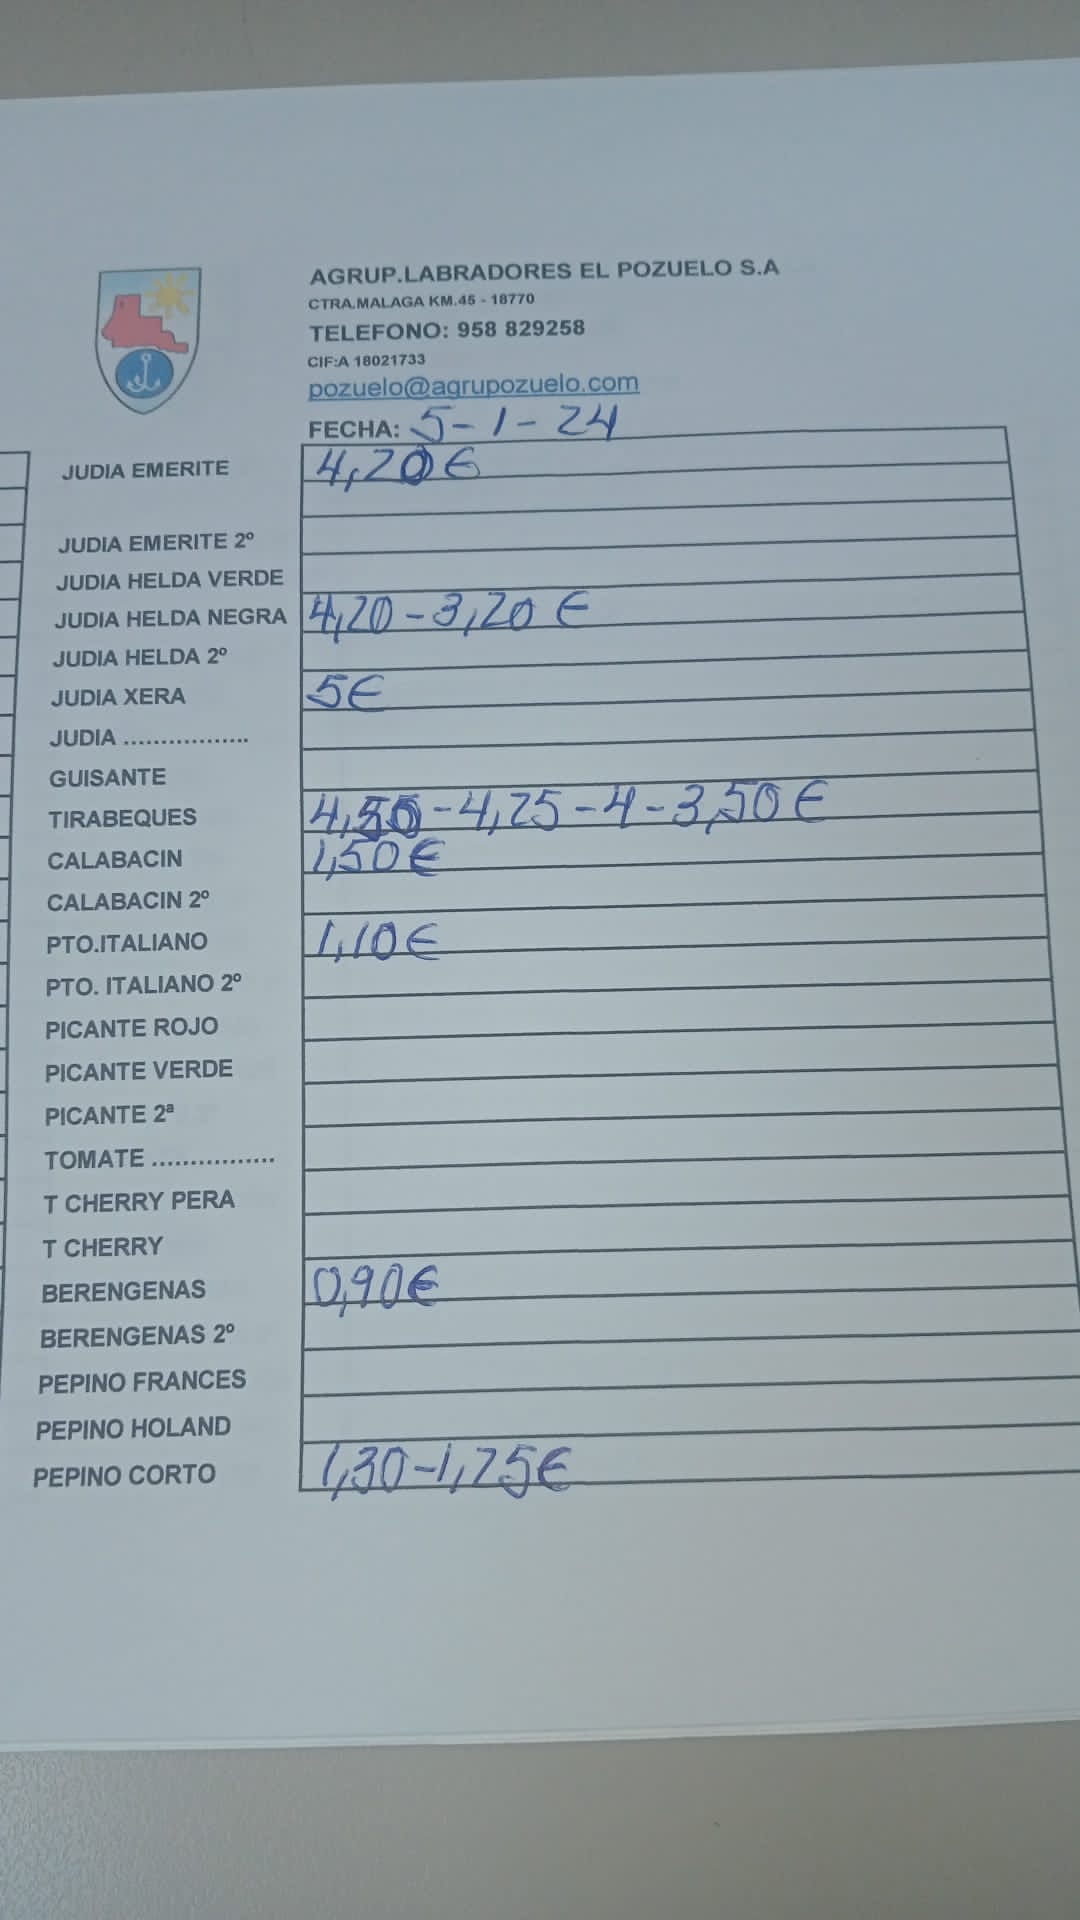 AGRUP.LABRADORES EL POZUELO S.A
CTRA.MALAGA KM.45 - 18770
TELEFONO: 958 829258
CIF:A 18021733
pozuelo@agrupozuelo.com
FECHA: 5-1-24
JUDIA EMERITE 4,20€
JUDIA EMERITE 2º
JUDIA HELDA VERDE
JUDIA HELDA NEGRA 4,20-3,20€
JUDIA HELDA 2º
JUDIA XERA 5€
JUDIA .................
GUISANTE
TIRABEQUES 4,50-4,25-4-3,50€
CALABACIN 1,50€
CALABACIN 2º
PTO.ITALIANO 1,10€
PTO. ITALIANO 2º
PICANTE ROJO
PICANTE VERDE
PICANTE 2ª
TOMATE ................
T CHERRY PERA
T CHERRY
BERENGENAS 0,90€
BERENGENAS 2º
PEPINO FRANCES
PEPINO HOLAND
PEPINO CORTO 1,30-1,25€